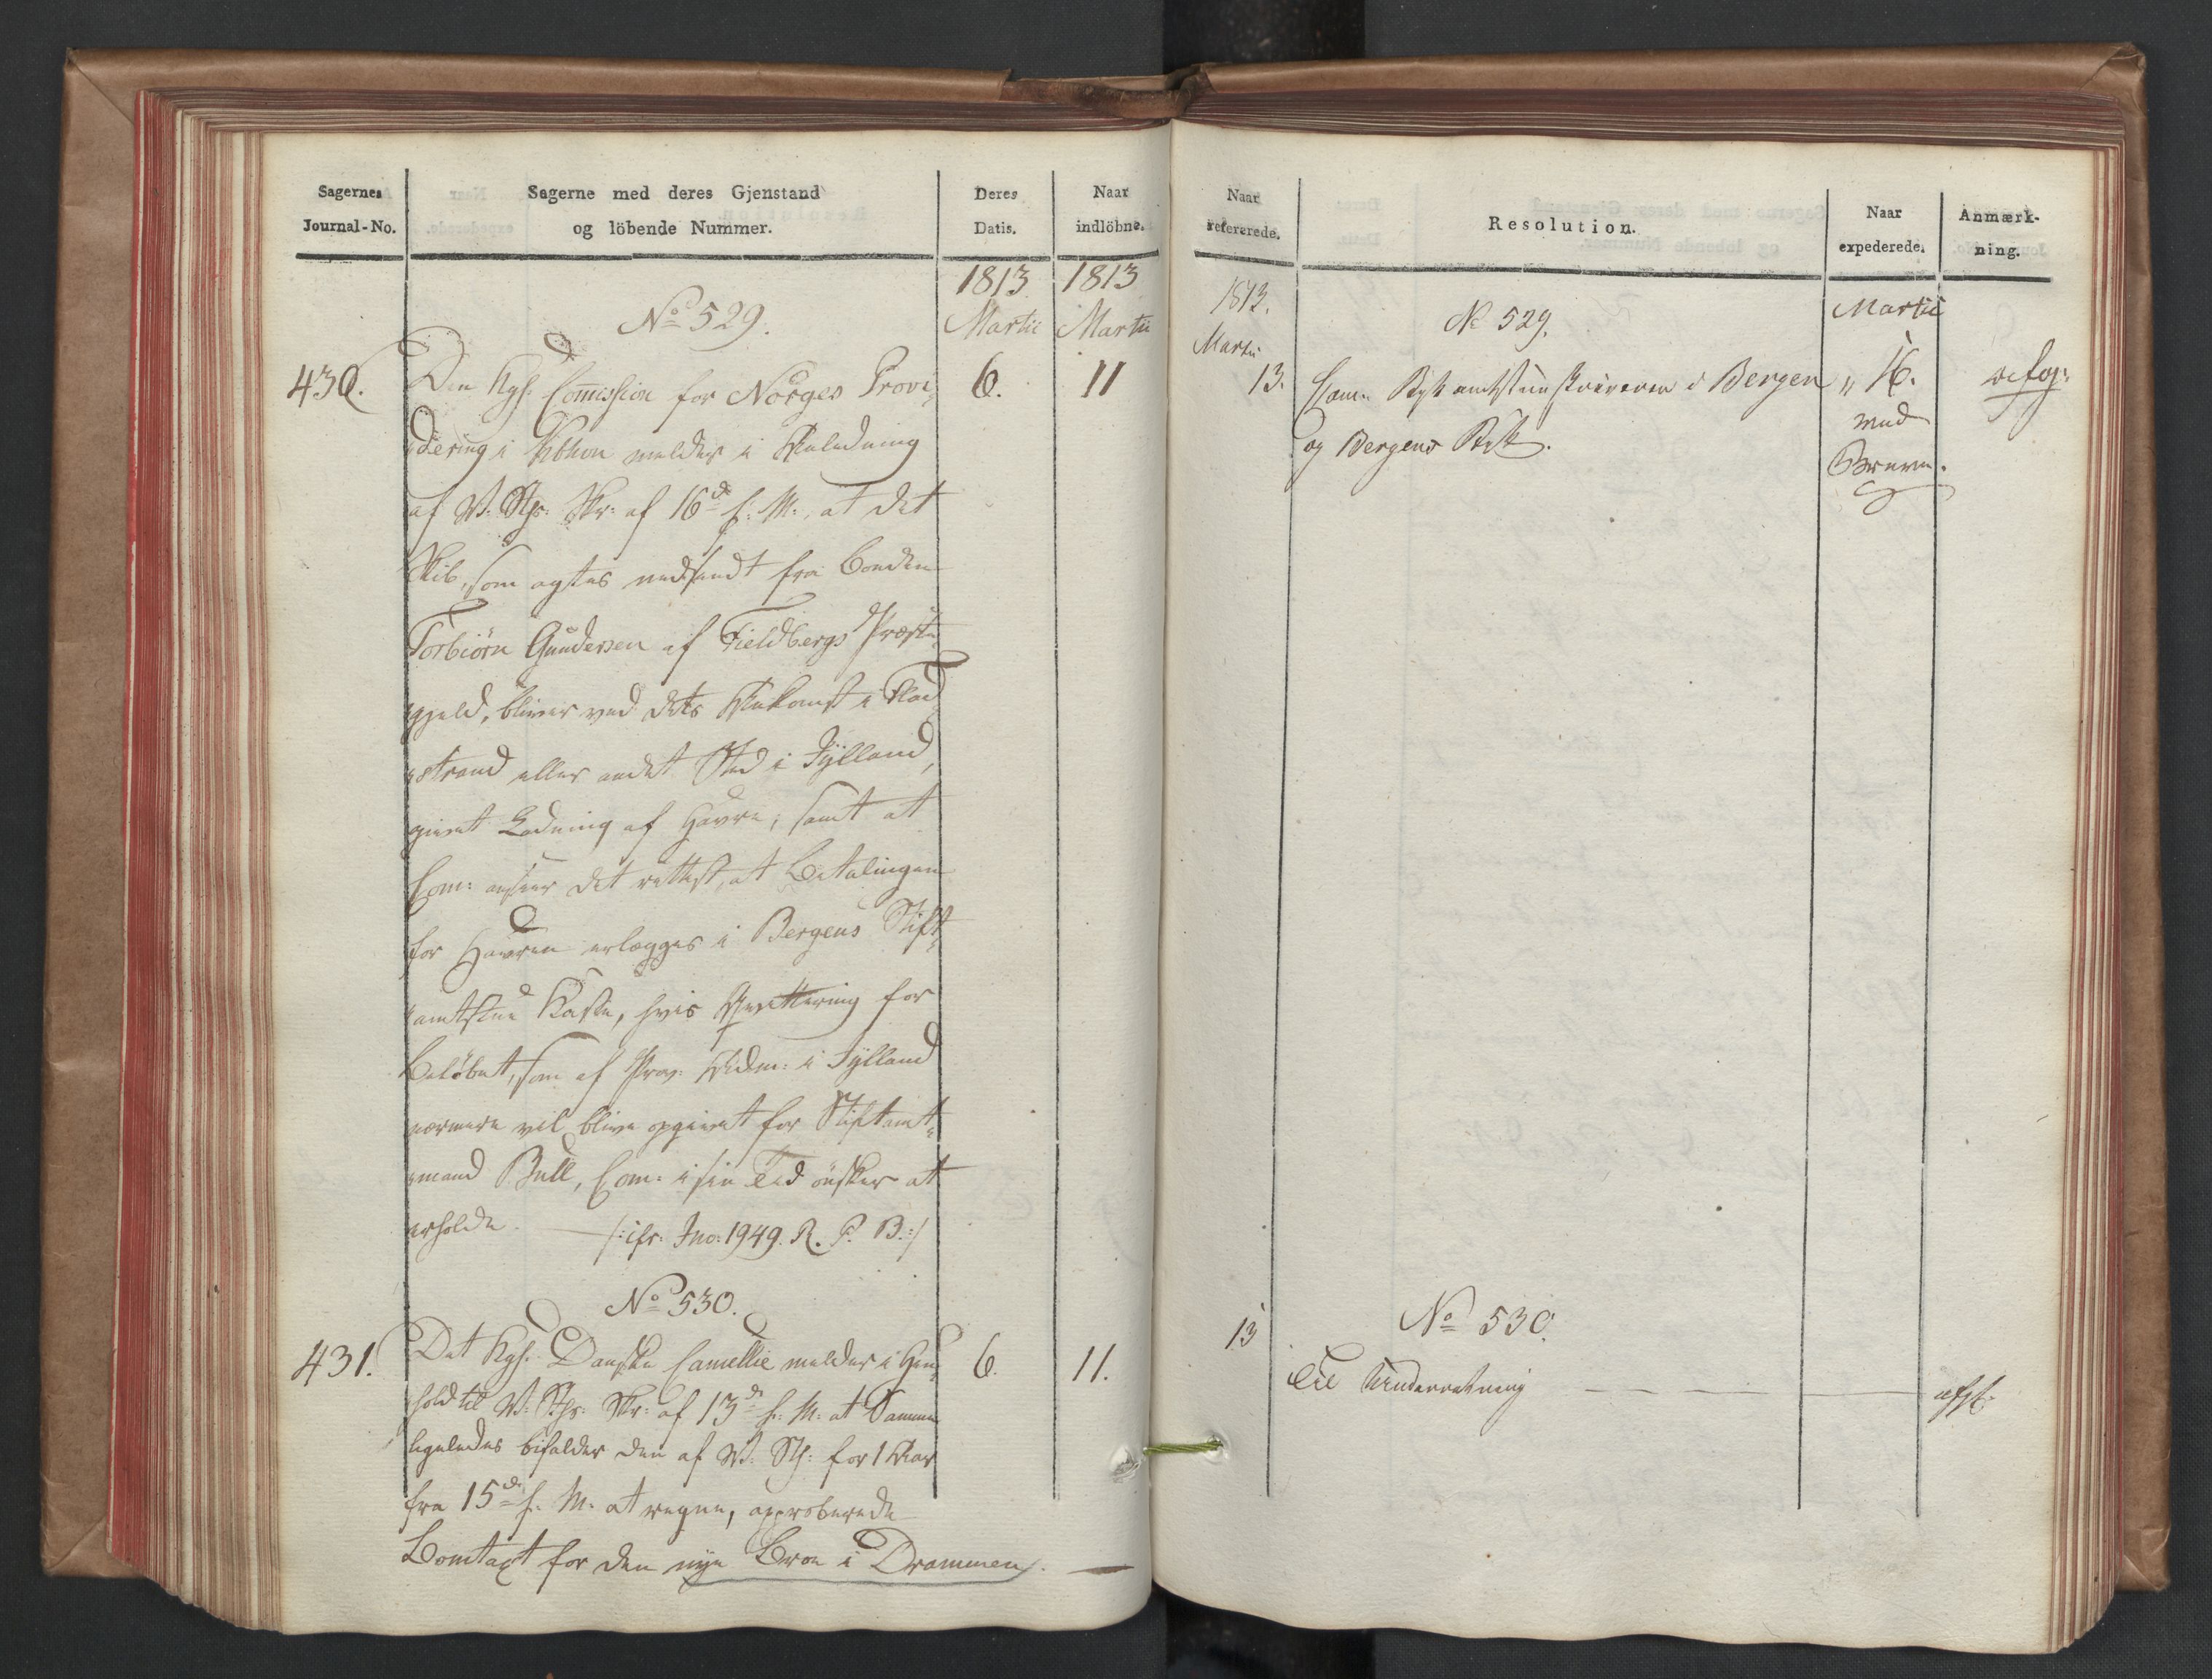 Sagernes
Journal-No.
Sagerne med deres Gjenstand
og löbende Nummer.
Deres
Datis.
Naar
indlöbne.
1813 1813
Martii Martii
No 529.
430. Den Kgl. Commission for Norges Provi- 6. 11
dering i Kbhvn melder i Anledning
af V: Sths: Skr: af 16de f: M:, at det
Skib, som agtes nedsendt fra Bonden
Torbiörn Gundersen af Fieldbergs Præste-
gjeld, bliver ved dets Ankomst i Flad-
strand eller andet Sted i Jylland,
givet Ladning af Havre; samt at
Com: anseer det rettest, at Betalingen
for Havren erlægges i Bergens Stift-
amtstue Kasse, hvis Qvittering for
Belöbet, som af Prov: Adm: i Jylland
nærmere vil blive opgivet for Stiftamt-
mand Bull, Com: i sin Tid önsker at
erholde. — /: cfr: Jno: 1949. R. P. B. :/
No 530.
431. Det Kgl. Danske Cancellie melder i Hen- 6. 11.
hold til V: Sths: Skr: af 13de f: M: at Samme
ligeledes bifalder den af V: Sth: for 1 Aar
fra 15de f. M. at regne, approberede
Bomtaxt for den nye Broe i Drammen. —
Naar
refererede.
Resolution.
Naar
expederede.
Anmærk-
ning.
1813.
Martii
No 529.
Martii
13. Com. Stiftamtstueskriveren i Bergen " 16.
og Bergens Stift.
med
Breve.
No 530.
13
Til Underretning — — —